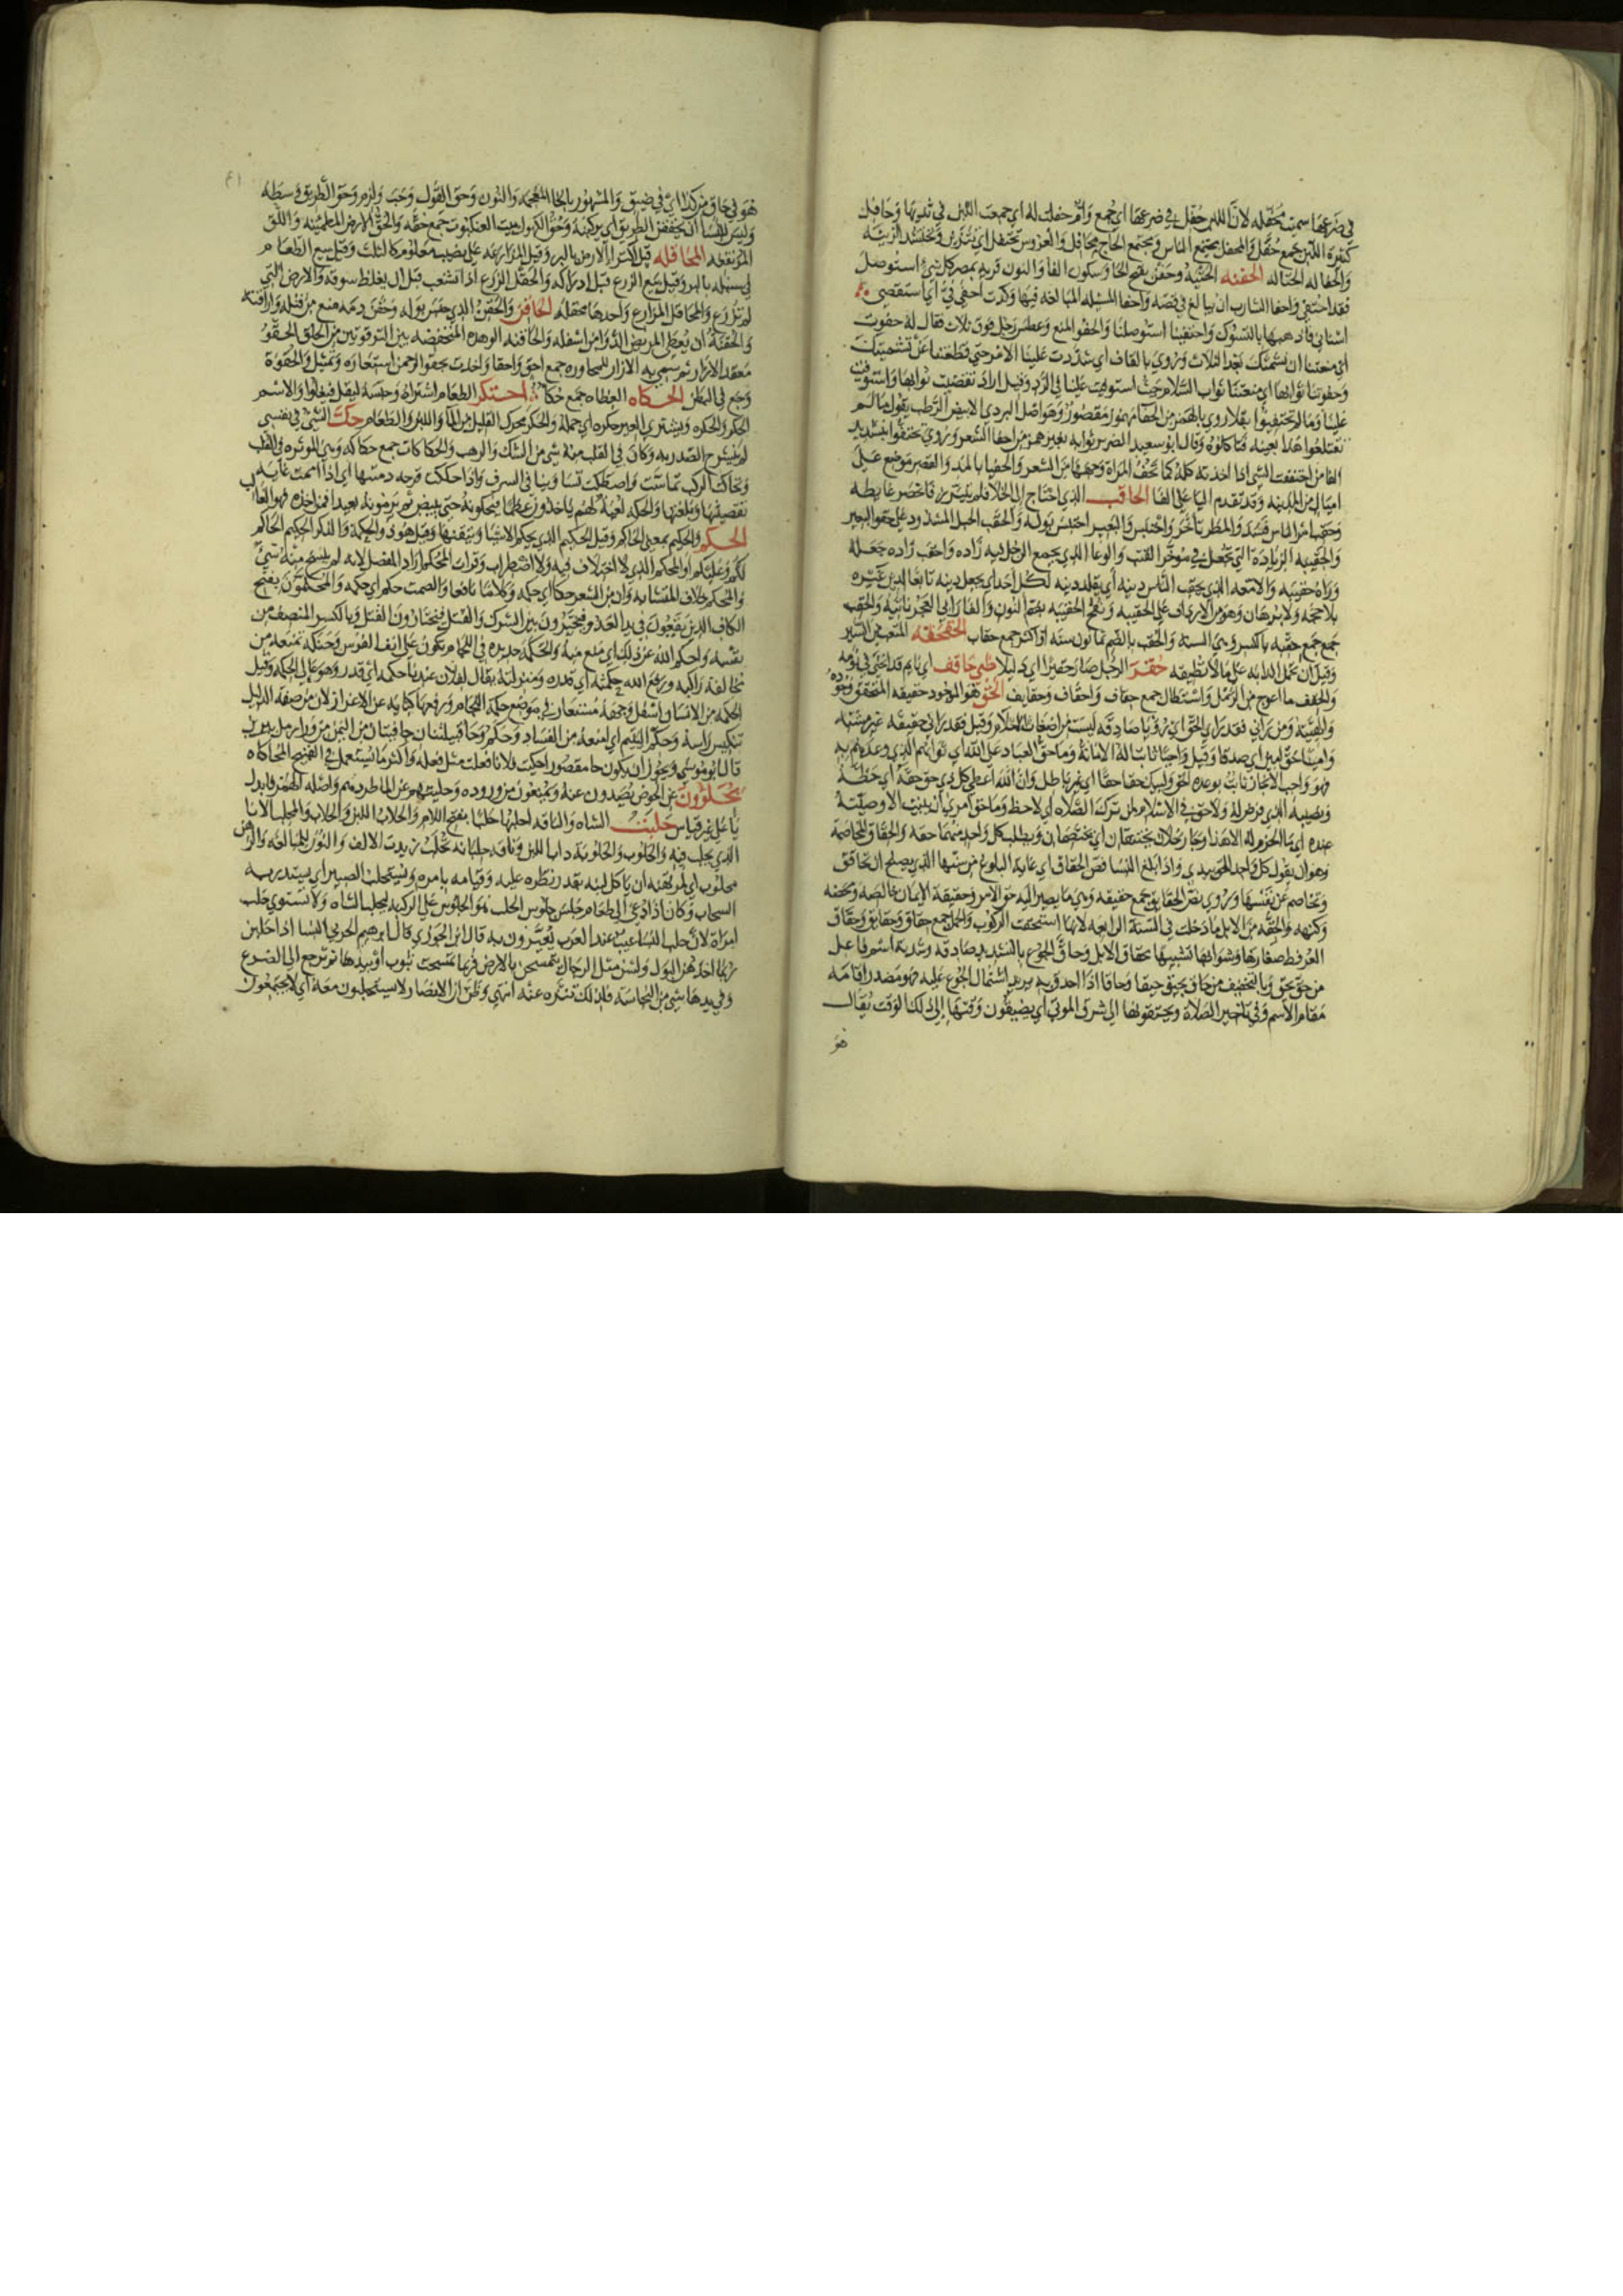 في ضرعها سميت محفله لان اللبن حفل في ضرعها اي جمع وام حفلت له اي جمعت اللبن في ثديها وحافل
كثيرة اللبن جمع حفل والمحفل مجتمع الناس ومجتمع الحاج محافل والعروس تحتفل اي تتزين وتحتشد للزينه
والحفاله الحثاله الحفنه الحثية وحفن بفتح الحا وسكون الفا والنون قرية بمصر كل شي استوصل
فقد احتفي واحفا الشارب ان يبالغ في قصه واحفا المسله المبالغه فيها وكدت احفي في اي استقصي
اسناني فاذهبها بالتسوك واحتفينا استوصلنا والحفو المنع وعطس رجل فوق ثلاث فقال له حفوت
اي منعتنا ان نشمتك بعد الثلاث وروي بالقاف اي شددت علينا الامر حتي قطعتنا عن تشميتك
وحفوتنا ثوابها اي منعتنا ثواب السلام حيث استوليت علينا في الرد وقيل اراد تقصيت ثوابها واستوفيت
علينا وما لم تحتفيوا بقلا روي بالهمز من الحفا مهموز مقصور وهو اصل البردي الابيض الرطب يقول ما لم
تقتلعوا هذا بعينه فتاكلوه وقال ابو سعيد الضرير صوابه بغير همز من احفا الشعر وروي تحتفوا بتشديد
الفا من احتففت الشي اذا اخذته كله كما تحف المراة وجهها من الشعر والحفيا بالمد والقصر موضع علي
اميال من المدينه وقد تقدم اليا علي الفا الحاقب الذي احتاج الي الخلا فلم يتبرز فانحصر غايطه
وحقب امر الناس فسد والمطر تاخر واحتبس والبعير احتبس بوله والحقب الحبل المشدود علي حقو البعير
والحقيبه الزيادة التي تجعل في موخر القتب والوعا الذي يجمع الرجل فيه زاده واحقب زاده جعله
وراه حقيبه والامعه الذي يحقب الناس دينه اي يقلد دينه لكل احد اي يجعل دينه تابعا لدين غيره
بلا حجه ولا برهان وهو من الارداف علي الحقيبه ونفج الحقيبه بضم النون والفا رابي العجز ناتيه والحقب
جمع حقبه بالكسر وهي السنه والحقب بالضم ثمانون سنه او اكثر جمع حقاب الحقحقه المتعب من السير
وقيل ان تحمل الدابه علي ما لا تطيقه حقر الرجل صار حقيرا اي ذليلا ظبي حاقف اي نايم قد انحني في نومه
والحقف ما اعوج من الرمل واستطال جمع حقاف واحقاف وحقايف الحق هو الموجود حقيقه المتحقق وجوده
والهيته ومن راني فقد راي الحق اي رويا صادقه ليست من اضغاث الاحلام وقيل فقد راني حقيقه غير مشبه
وامينا حق امين اي صدقا وقيل واجبا ثابتا له الامانة وما حق العباد علي الله اي ثوابهم الذي وعدهم به
فهو واجب الانجاز ثابت بوعده الحق ولبيك حقا حقا اي غير باطل وان الله اعطي كل ذي حق حقه اي حظه
ونصيبه الذي فرض له ولا حق في الاسلام لمن ترك الصلاه اي لا حظ وما حق امري ان يبيت الا وصيته
عنده اي ما الاحزم له الا هذا وجا رجلان يحتقان اي يختصمان ويطلب كل واحد منهما حقه والحقاق المخاصمة
وهو ان يقول كل واحد الحق بيدي واذا بلغ النسا نص الحقاق اي غاية البلوغ من سنها الذي يصلح ان تحاقق
وتخاصم عن نفسها وروي نص الحقايق جمع حقيقه وهي ما يصير اليه حق الامر وحقيقة الايمان خالصه ومحضه
وكنهه والحقه من الابل ما دخلت في السنة الرابعه لانها استحقت الركوب والحمل جمع حقاق وحقايق وحقاق
العرفط صغارها وشوابها تشبيها بحقاق الابل وحاق الجوع بالتشديد صادقه وشدته اسم فاعل
من حق يحق وبالتخفيف من حاق يحيق حيقا وحاقا اذا احدق به يريد اشتمال الجوع عليه فهو مصدر اقامه
مقام الاسم وفي تاخير الصلاة ويحتقونها الي شرق الموتي اي يضيقون وقتها الي ذلك الوقت يقال
هو
هو في حاق من كذا اي في ضيق والمشهور بالخا المعجمه والنون وحق القول وجب ولزم وحق الطريق وسطه
وليس للنسا ان يحققن الطريق اي يركبنه وحق الكهول بيت العنكبوت جمع حقه والحق الارض المطمينه واللق
المرتفعه المحاقله قيل اكترا الارض بالبر وقيل المزارعه علي نصيب معلوم كالثلث وقيل بيع الطعام
في سنبله بالبر وقيل بيع الزرع قبل ادراكه والحقل الزرع اذا تشعب قبل ان يغلظ سوقه والارض التي
لم تزرع والمحاقل المزارع واحدها محقله الحاقن والحقن الذي حبس بوله وحقن دمه منع من قتله واراقته
والحقنة ان يعطي المريض الدوا من اسفله والحاقنه الوهده المنخفضه بين الترقوتين من الحلق الحقو
معقد الازار ثم سمي به الازار للمجاوره جمع احق واحقا واخذت بحقو الرحمن استعاره وتمثيل والحقوة
وجع في البطن الحكاه العظاه جمع حكا احتكر الطعام اشتراه وحبسه ليقل فيغلوا والاسم
الحكر والحكره ويشتري العير حكره اي جمله والحكر محرك القليل من الما واللبن والطعام حك الشي في نفسي
لم ينشرح الصدر به وكان في القلب منه شي من الشك والرهب والحكاكات جمع حكاكه وهي الموثره في القلب
وتحاكت الركب تماست واصطكت تساوينا في الشرف واذا حككت قرحه دميتها اي اذا اممت غاية
تقصيتها وبلغتها والحكه لعبة لهم ياخذون عظما فيحكونه حتي يبيض ثم يرمونه بعيدا فمن اخذه فهو الغالب
الحكم والحكيم بمعني الحاكم وقيل الحكيم الذي يحكم الاشيا ويتقنها وقيل هو ذو الحكمة والذكر الحكيم الحاكم
لكم وعليكم او المحكم الذي لا اختلاف فيه ولا اضطراب وقرات المحكم اراد المفصل لانه لم ينسخ منه شي
والمحكم خلاف المتشابه وان من الشعر حكما اي حكمه وكلاما نافعا والصمت حكم اي حكمه والمحكمون بفتح
الكاف الذين يقعون في يد العدو فيخيرون بين الشرك والقتل فيختارون القتل وبالكسر المنصف من
نفسه واحكم الله عن ذلك اي منع منه والحكمة حديده في اللجام تكون علي انف الفرس وحنكه تمنعه من
مخالفة راكبه ورفع الله حكمته اي قدره ومنزلته يقال لفلان عندنا حكمه اي قدر وهو عالي الحكمه وقيل
الحكمه من الانسان اسفل وجهه مستعار من موضع حكمة اللجام ورفعها كنايه عن الاعزاز لان من صفة الذليل
تنكيس راسه وحكم اليتيم اي امنعه من الفساد وحكم وحا قبيلتان جافيتان من اليمن من ورا رمل يبرين
قال ابو موسي ويجوز ان يكون حا مقصورا حكيت فلانا فعلت مثل فعله واكثر ما يستعمل في القبيح المحاكاه
يحلؤون عن الحوض يصدون عنه ويمنعون من وروده وحليتهم عن الما طردتهم واصله الهمز فابدل
يا علي غير قياس حلبت الشاه والناقه احلبها حلبا بفتح اللام والحلاب اللبن والحلاب والمحلب الانا
الذي يحلب فيه والحلوب والحلوبة ذاب اللبن وناقه حلبانه تحلب زيدت الالف والنون للمبالغه والرهن
محلوب اي لمرتهنه ان ياكل لبنه بقدر نظره عليه وقيامه بامره ونستحلب الصبير اي نستدر به
السحاب وكان اذا دعي الي طعام جلس جلوس الحلب هو الجلوس علي الركبه لحلب الشاه ولا تستوي حلب
امراة لان حلب النسا عيب عند العرب يعيرون به قال ابن الجوزي قال ابرهيم الحربي النسا اذا حلبن
ربما اخذهن البول وليس مثل الرجال يتمسحن بالارض فربما مسحت بثوب او بيدها ثم ترجع الي الضرع
وفي يدها شي من النجاسه فلذلك تنزه عنه انتهي وظن ان الانصار لا يستحلبون معه اي لا يجتمعون